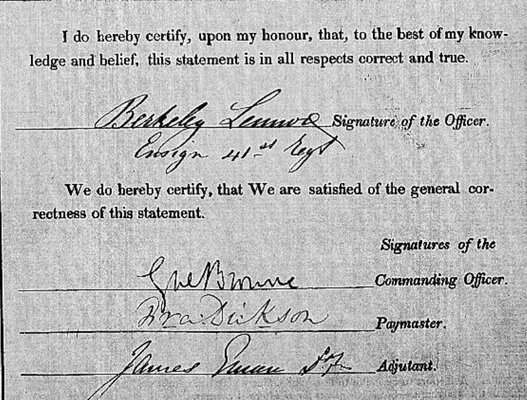 I do hereby certify, upon my honour, that, to the best of my know-
ledge and belief, this statement is in all respects correct and true.
Berkeley Lennox Signature of the Officer.
Ensign 41st Regt
We do hereby certify, that We are satisfied of the general cor-
rectness of this statement.
Signatures of the
Browne Commanding Officer.
Dickson Paymaster.
James Eman Adjutant.